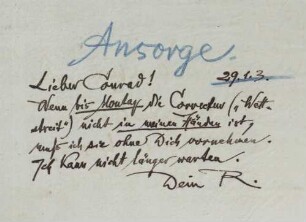 Ansorge.
Lieber Conrad! 29.1.3.
Wenn bis Montag die Correctur („Wett-
streit") nicht in meinen Händen ist,
muß ich sie ohne Dich vornehmen.
Ich kann nicht länger warten.
Dein R.